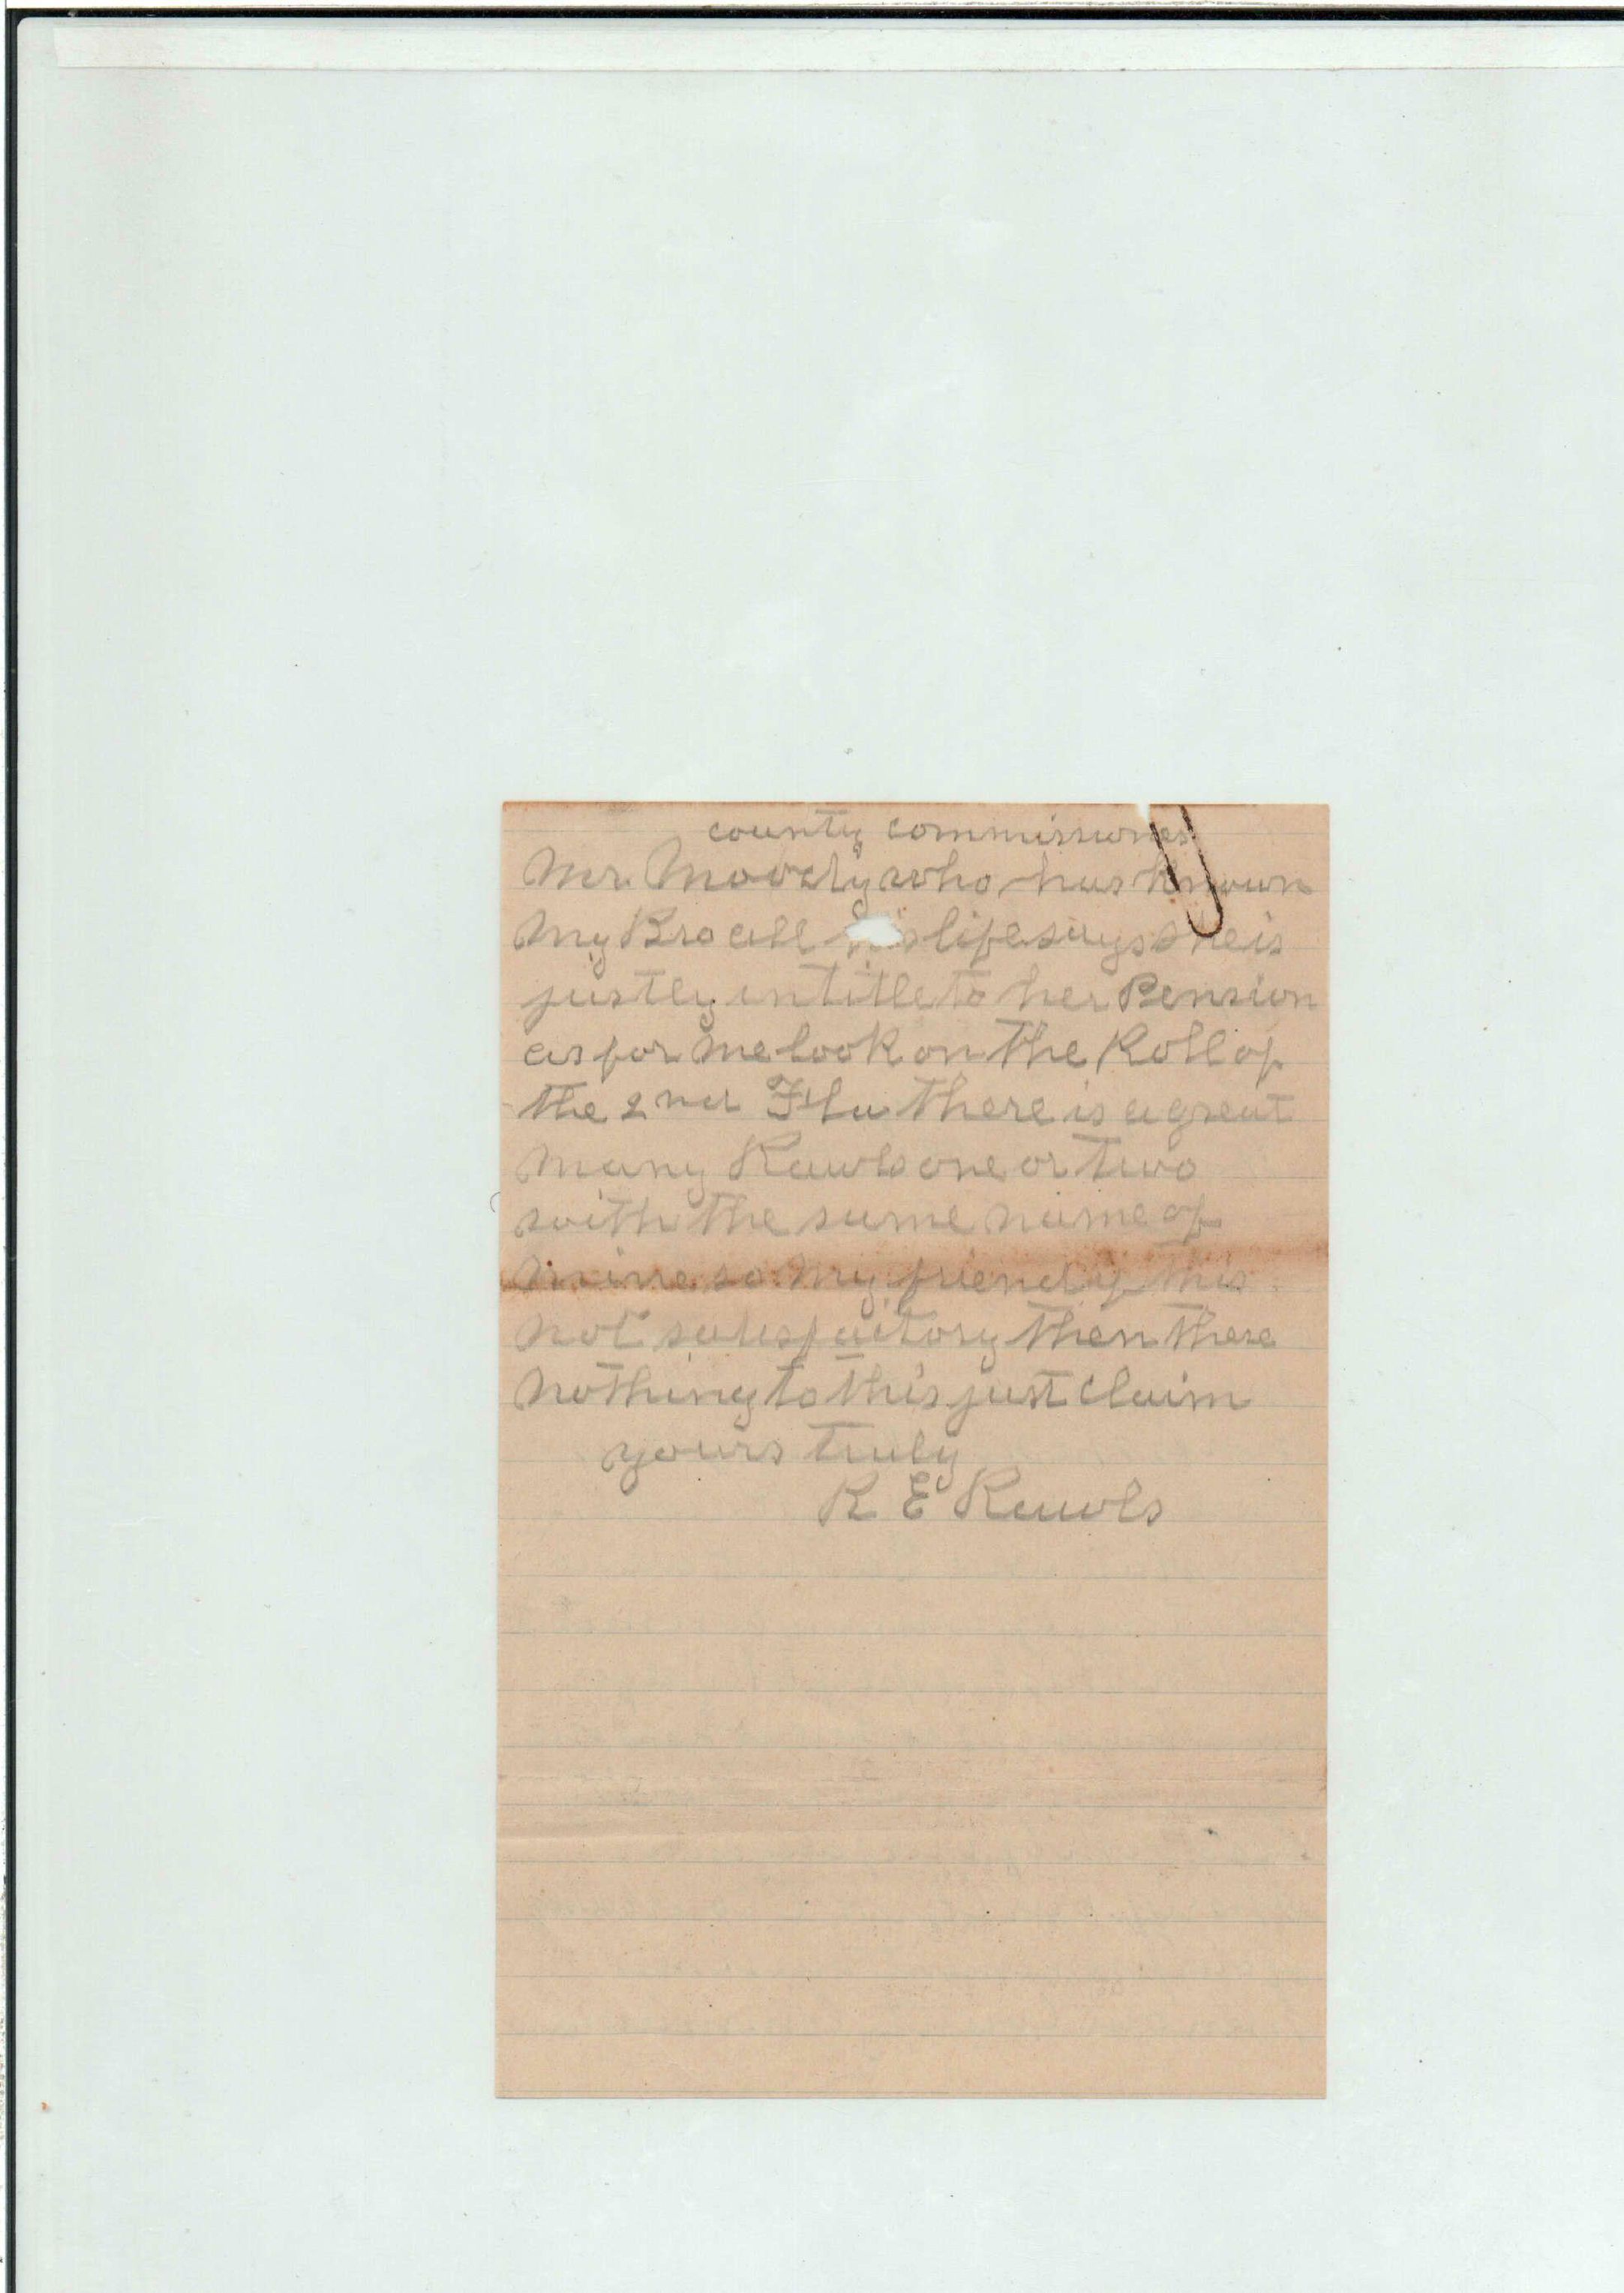 county commissiones
Mr. Moody who has known
My Bro all his life says she is
justly intitle to her Pension
as for me look on the Roll of
the 2nd Fla there is a great
many Rawls one or two
with the same name of
mine so my friend if this
not satisfactory then there
nothing to this just claim
yours truly
R E Rawls